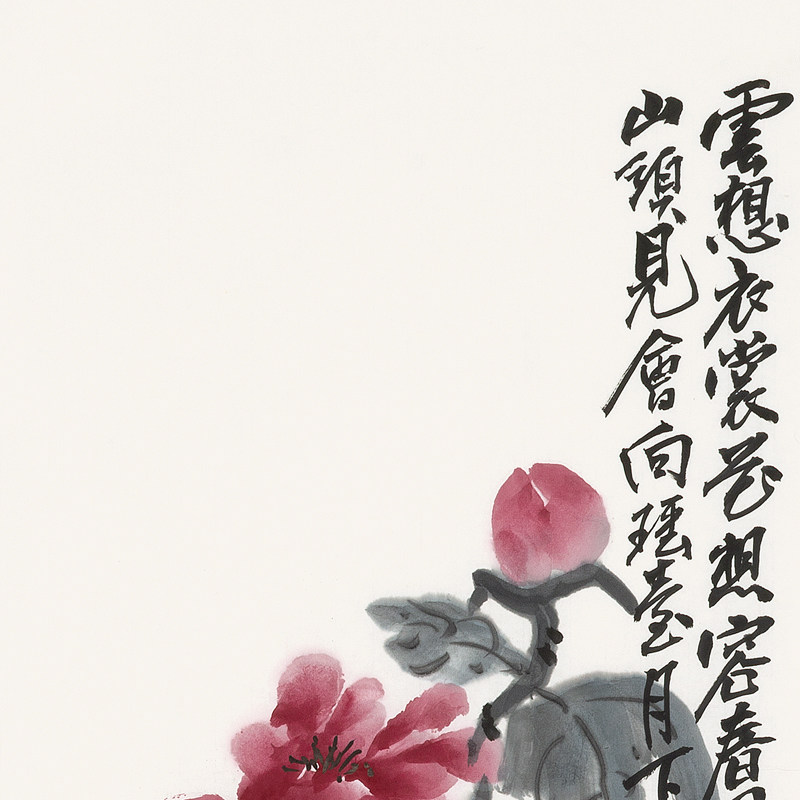 雲想衣裳花想容春
山頭見會向瑶臺月下